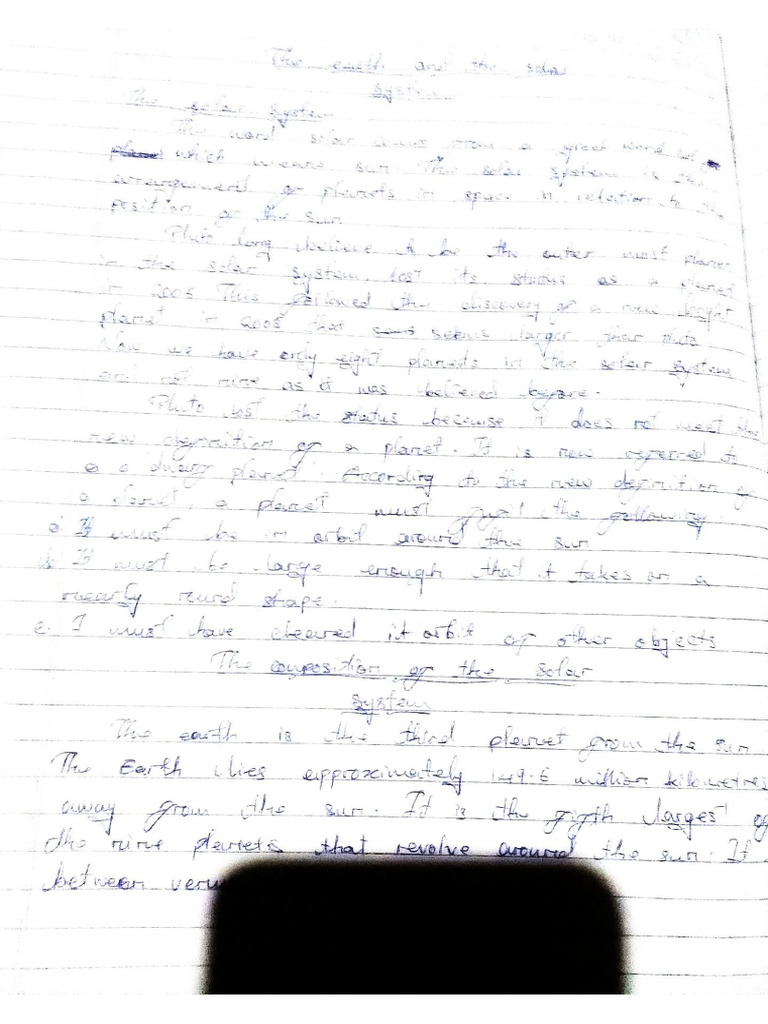 The earth and the solar
system
The solar system
The word solar comes from a greek word
which means sun. The solar system is the
arrangement of planets in space in relation to the
position of the sun
Pluto long believe to be the outer most planet
in the solar system, lost its status as a planet
in 2006 This followed the discovery of a new
planet in 2005 that seems larger than Pluto
Now we have only eight planets in the solar system
and not nine as it was believed before.
Pluto lost the status because it does not meet the
new definition of a planet. It is now referred to
as a dwarf planet. According to the new definition of
a planet, a planet must the following
a It must be in orbit around the sun
b It must be large enough that it takes on a
nearly round shape.
c. I must have cleared it orbit of other objects
The composition of the solar
system
The earth is the third planet from the sun
The Earth lies approximately 149.6 million kilometres
away from the sun. It is the fifth largest of
the nine planets that revolve around the sun. It
between